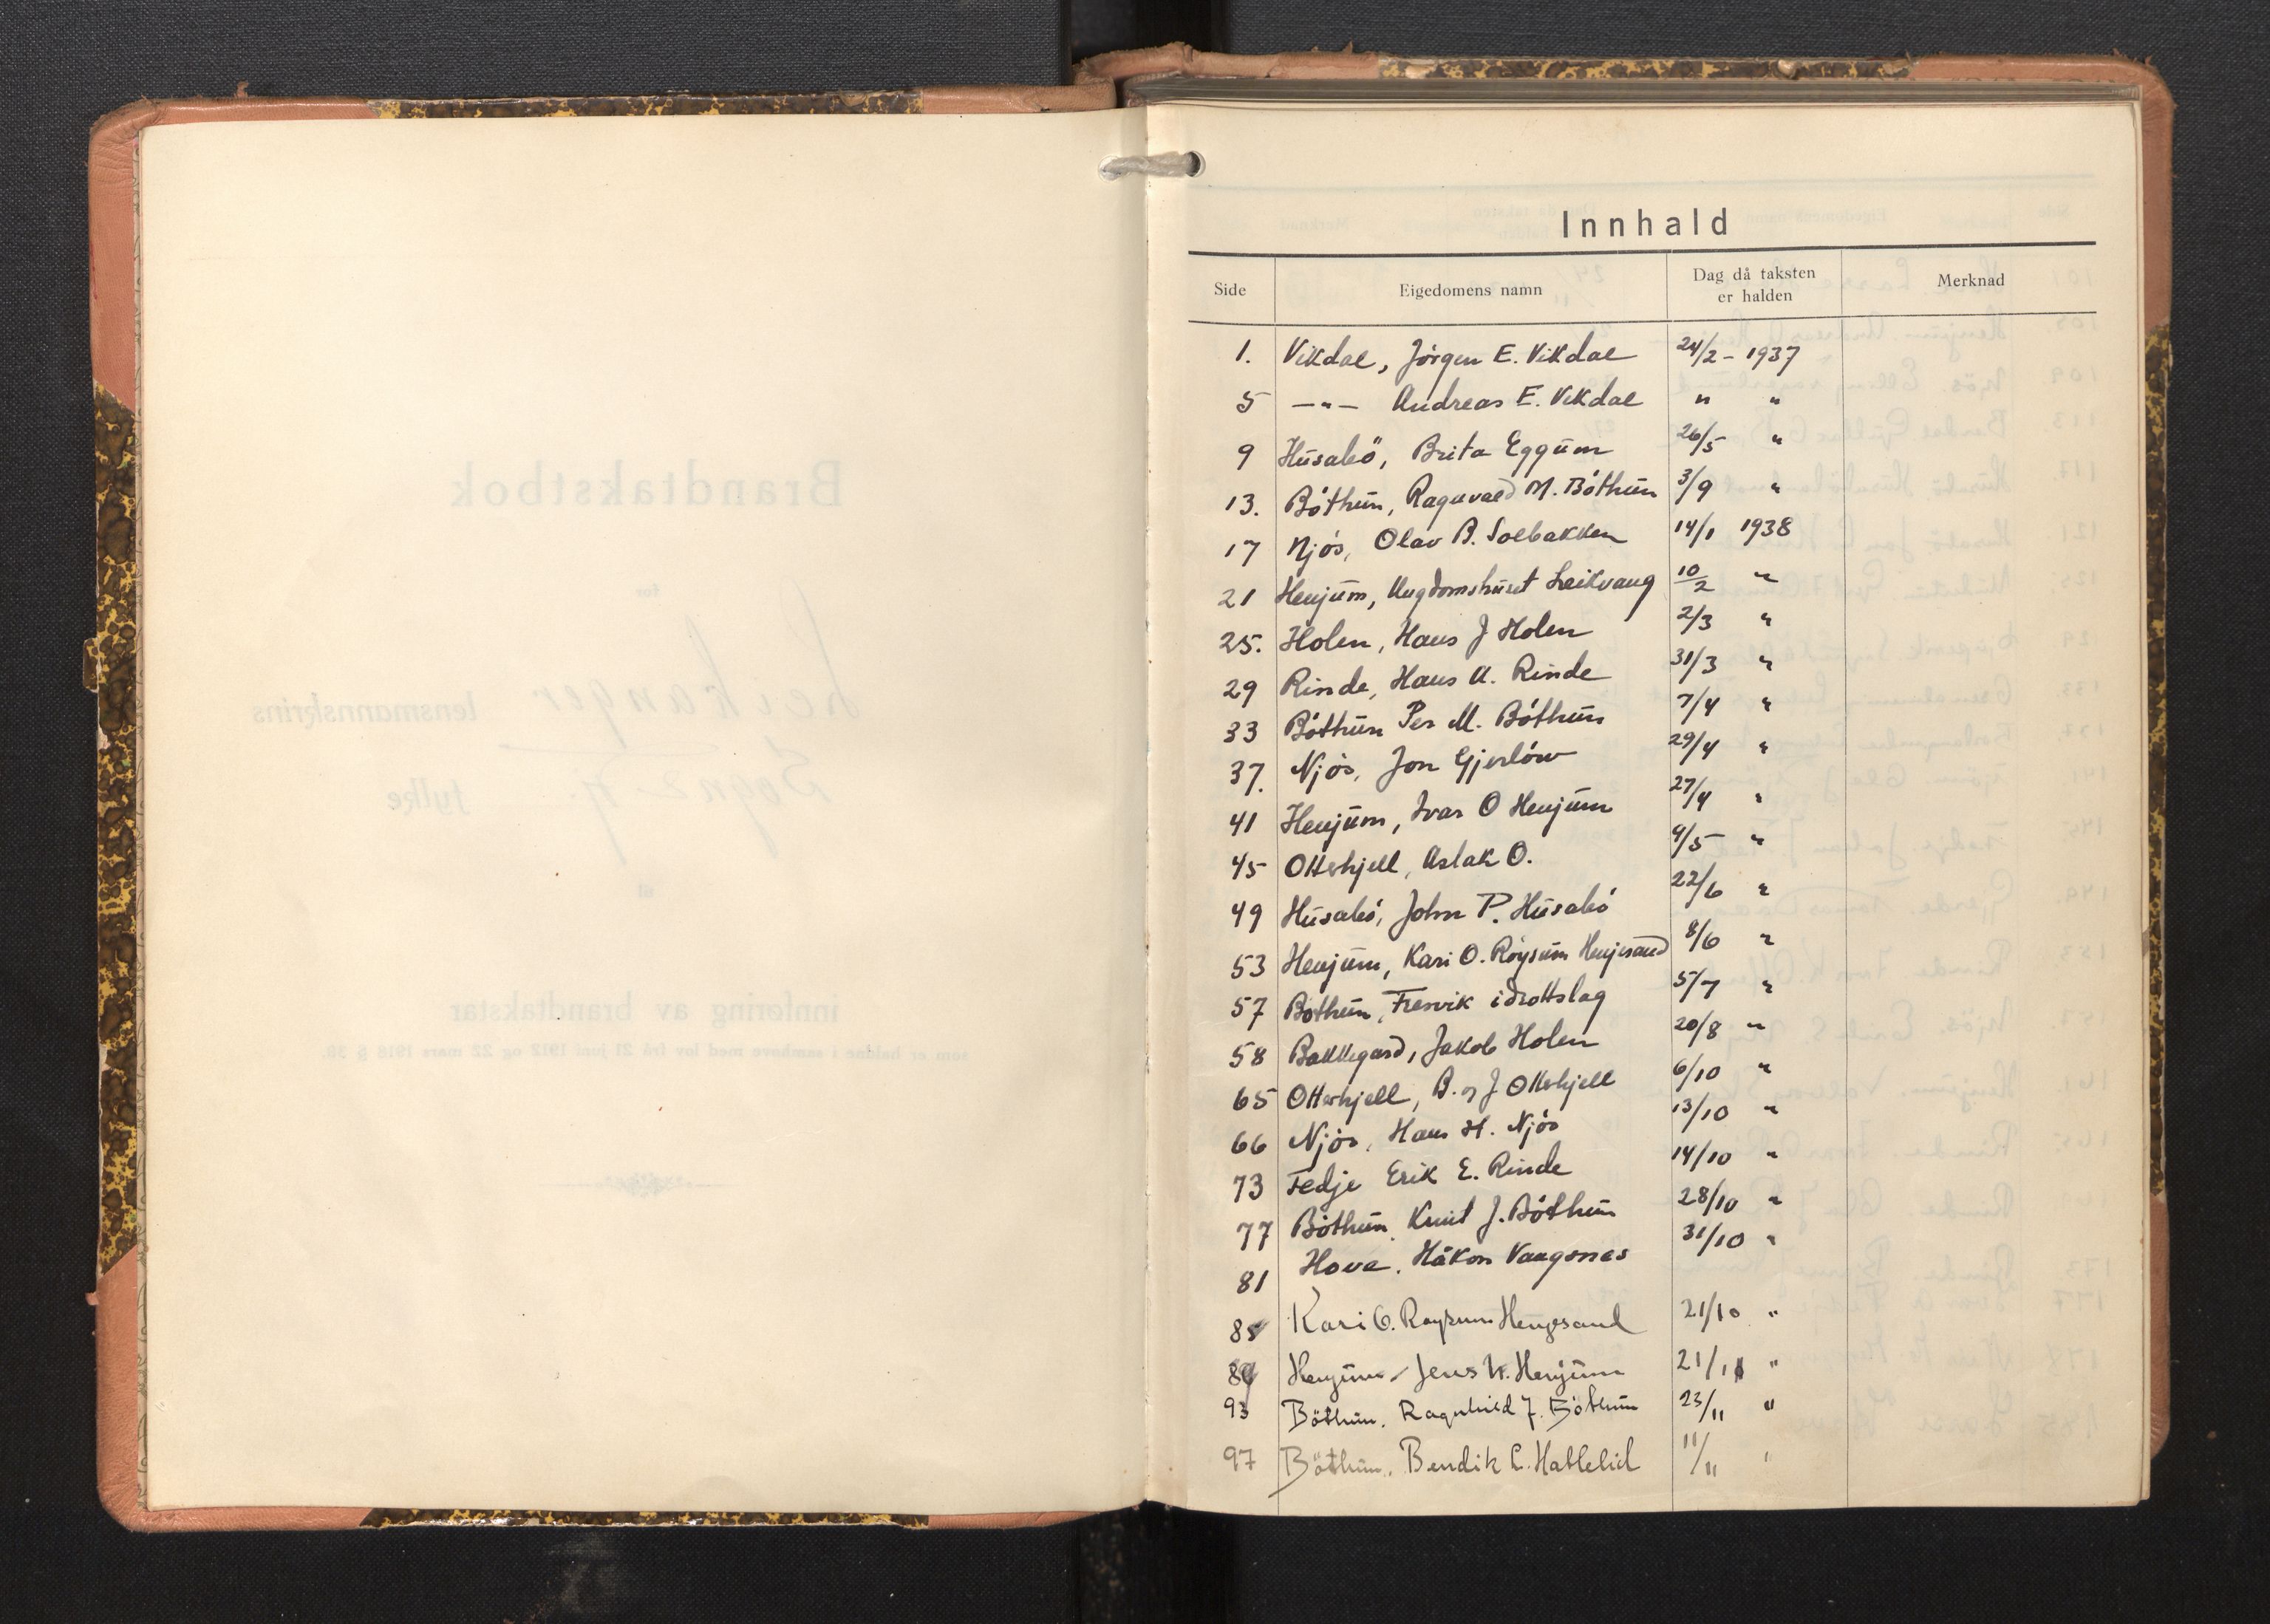 Innhald
Side Eigedomens namn Dag då taksten er halden Merknad
1. Vikdal, Jörgen E. Vikdal 24/2 - 1937
5 —"— Andreas E. Vikdal " "
9 Husabö, Brita Eggum 26/5 "
13. Böthun, Ragnvald M. Böthun 3/9 "
17 Njös, Olav B. Solbakken 14/1 1938
21 Henjum, Ungdomshuset Leikvang 10/2 "
25. Holen, Hans J Holen 2/3 "
29 Rinde, Hans A. Rinde 31/3 "
33 Böthun Per M. Böthun 7/4 "
37. Njös, Jon Gjerlöw 29/4 "
41 Henjum, Ivar O Henjum 27/4 "
45 Ottershjell, Aslak O. 9/5 "
49 Husabö, John P. Husabö 22/6 "
53 Henjum, Kari O. Röysum Henjesand 8/6 "
57 Böthun, Fresvik idrottslag 5/7 "
58 Bakkegard, Jakob Holen 20/8 "
65 Ottershjell, B. og J Ottershjell 6/10 "
66 Njös, Hans H. Njös 13/10 "
73 Fedje Erik E. Rinde 14/10 "
77 Böthun. Knut J. Böthun 28/10 "
81 Hove. Håkon Vangsnes 31/10 "
85 Kari O. Röysum Henjesand 21/10 "
89 Henjum, Jens W. Henjum 21/11 "
93 Böthun. Ragnhild J. Böthun 23/11 "
97 Böthun. Bendik L. Hatlelid 11/11 "
Brandtakstbok
for
Leikanger lensmannskrins
Sogn o fj. fylke
til
innføring av brandtakstar
som er haldne i samhøve med lov frå 21 juni 1912 og 22 mars 1916 § 39.